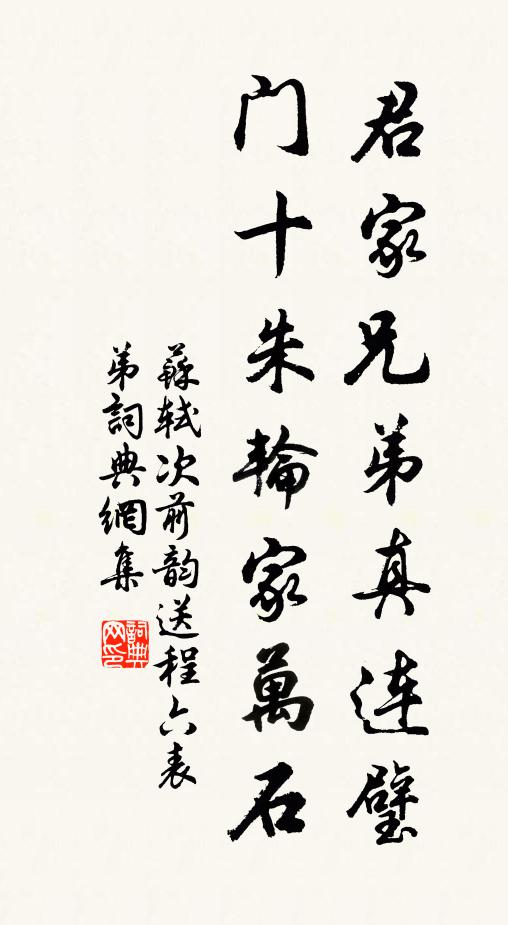 君家兄弟真连璧
门十朱輪家萬石
蘇轼次前韵送程六表
弟詞典網集
詞典网印